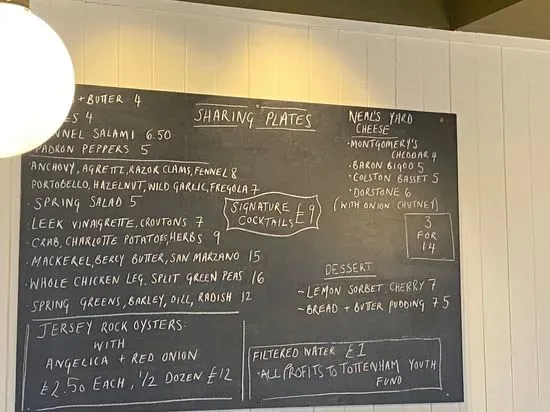 + BUTTER 4
4
SALAMI 6.50
PADRON PEPPERS 5
· ANCHOVY, AGRETTE, RAZOR CLAMS, FENNEL 8
PORTOBELLO, HAZELNUT, WILD GARLIC, FREGOLA 7
· SPRING SALAD 5
· LEEK VINAIGRETTE, CROUTONS 7
· CRAB, CHARLOTTE POTATOES, HERBS 9
· MACKEREL, BERCY BUTTER, SAN MARZANO 15
· WHOLE CHICKEN LEG, SPLIT GREEN PEAS 16
· SPRING GREENS, BARLEY, DILL, RADISH 12
JERSEY ROCK OYSTERS:
WITH
ANGELICA + RED ONION
£2.50 EACH, 1/2 DOZEN £12
SHARING PLATES
SIGNATURE
COCKTAILS £9
NEAL'S YARD
CHEESE
· MONTGOMERY'S
CHEDDAR 4
· BARON BIGOD 5
· COLSTON BASSET 5
· DORSTONE 6
(WITH ONION CHUTNEY)
3
FOR
14
DESSERT
~ LEMON SORBET, CHERRY 7
~ BREAD + BUTTER PUDDING 7.5
FILTERED WATER £1
· ALL PROFITS TO TOTTENHAM YOUTH
FUND